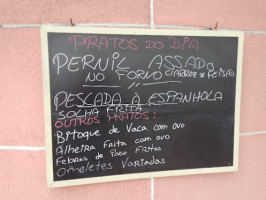 PRATOS DO DIA
PERNIL ASSADO
NO FORNO C/ARROZ DE FEIJÃO
PESCADA À ESPANHOLA
SOLHA FRITA
OUTROS PRATOS:
Bitoque de Vaca com ovo
Alheira Frita com ovo
Febras de Porco Fritas
Omeletes Variadas